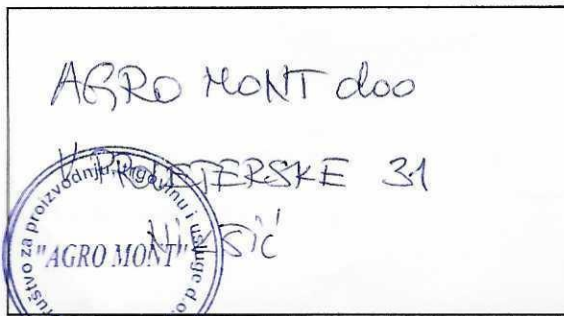 AGRO MONT doo
V PROLETERSKE 31
NIKŠIĆ
društvo za proizvodnju, trgovinu i usluge d.o.
"AGRO MONT"